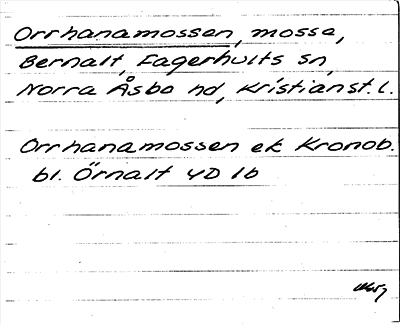 Orrhanamossen, mosse,
Bernalt, Fagerhults sn,
Norra Åsbo hd, Kristianst. l.
Orrhanamossen ek Kronob.
bl. Örnalt 4D 1b